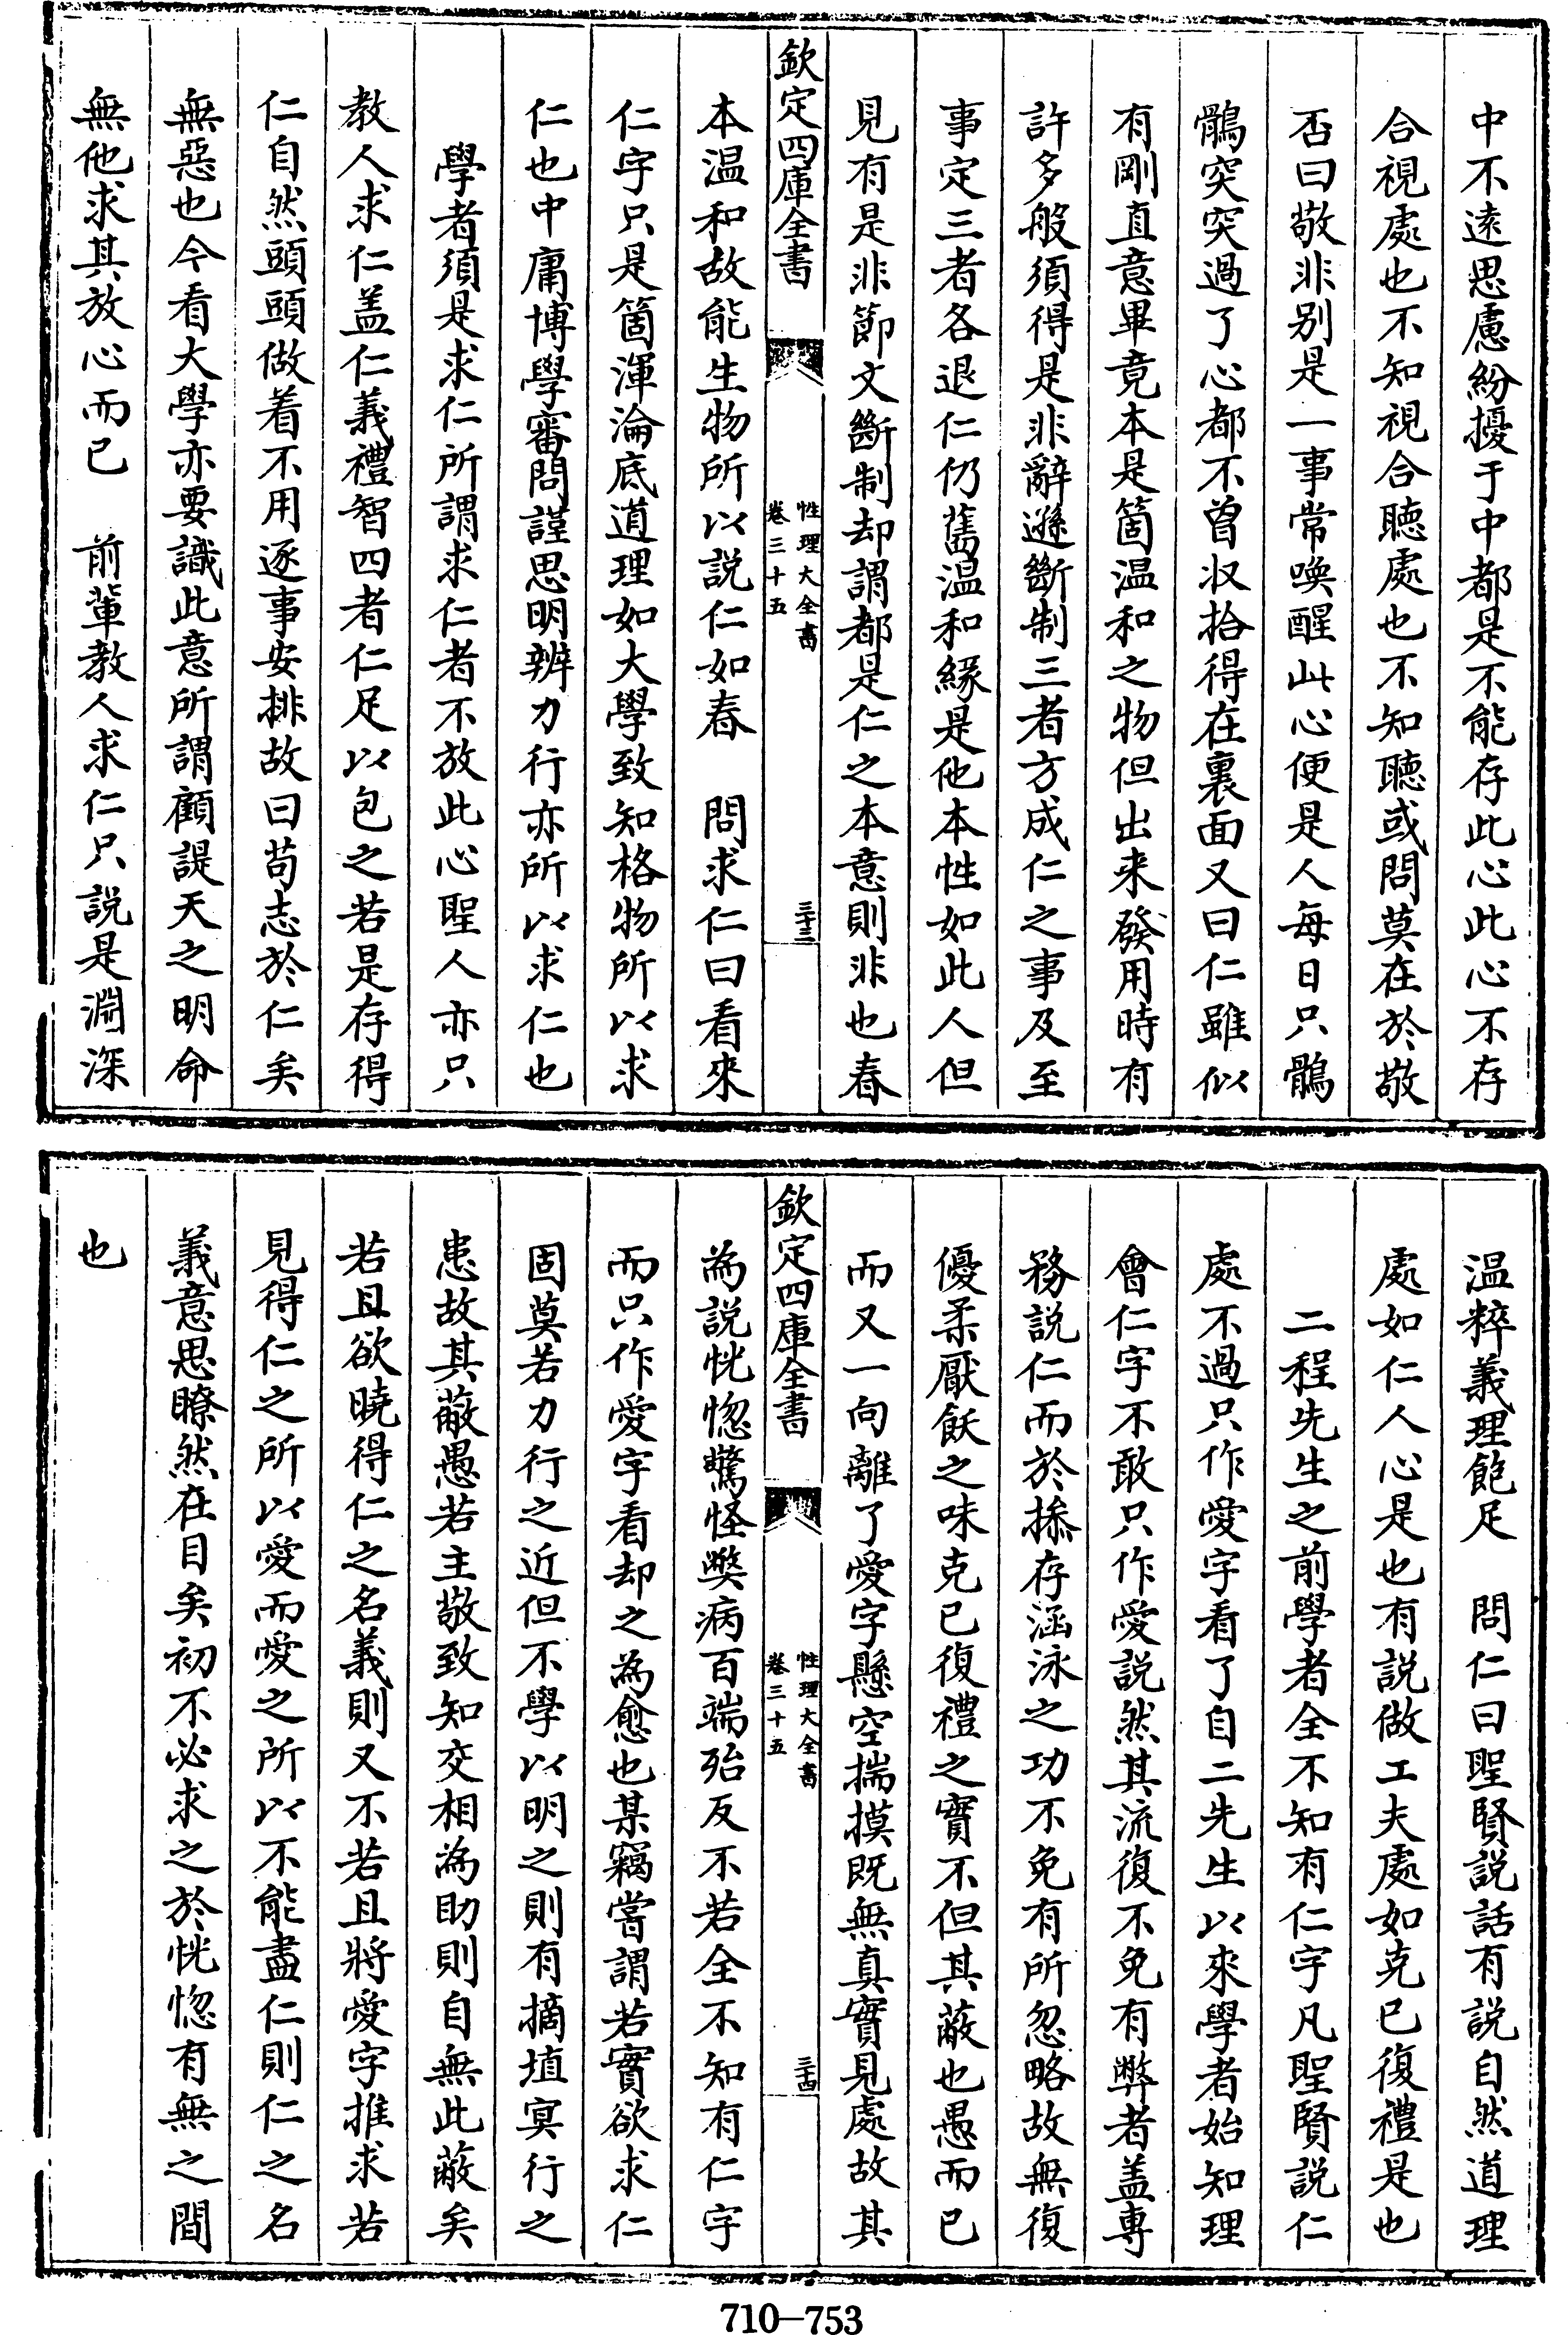 中不遠思慮紛擾于中都是不能存此心此心不存
合視處也不知視合聽處也不知聽或問莫在於敬
否曰敬非别是一事常喚醒此心便是人每日只鶻
鶻突突過了心都不曾収拾得在裏面又曰仁雖似
有剛直意畢竟本是箇温和之物但出来發用時有
許多般須得是非辭遜斷制三者方成仁之事及至
事定三者各退仁仍舊温和緣是他本性如此人但
見有是非節文斷制却謂都是仁之本意則非也春
欽定四庫全書
性理大全書
卷三十五
三十三
本温和故能生物所以説仁如春 問求仁曰看來
仁字只是箇渾淪底道理如大學致知格物所以求
仁也中庸博學審問謹思明辨力行亦所以求仁也
學者須是求仁所謂求仁者不放此心聖人亦只
教人求仁盖仁義禮智四者仁足以包之若是存得
仁自然頭頭做着不用逐事安排故曰苟志於仁矣
無惡也今看大學亦要識此意所謂顧諟天之明命
無他求其放心而已 前輩教人求仁只説是淵深
温粹義理飽足 問仁曰聖賢説話有説自然道理
處如仁人心是也有説做工夫處如克已復禮是也
二程先生之前學者全不知有仁字凡聖賢説仁
處不過只作愛字看了自二先生以來學者始知理
會仁字不敢只作愛説然其流復不免有弊者盖專
務説仁而於操存涵泳之功不免有所忽略故無復
優柔厭飫之味克已復禮之實不但其蔽也愚而已
而又一向離了愛字懸空揣摸既無真實見處故其
欽定四庫全書
性理大全書
卷三十五
三十四
為説恍惚驚怪弊病百端殆反不若全不知有仁字
而只作愛字看却之為愈也某竊嘗謂若實欲求仁
固莫若力行之近但不學以明之則有摘埴冥行之
患故其蔽愚若主敬致知交相為助則自無此蔽矣
若且欲曉得仁之名義則又不若且將愛字推求若
見得仁之所以愛而愛之所以不能盡仁則仁之名
義意思瞭然在目矣初不必求之於恍惚有無之間
也
710—753